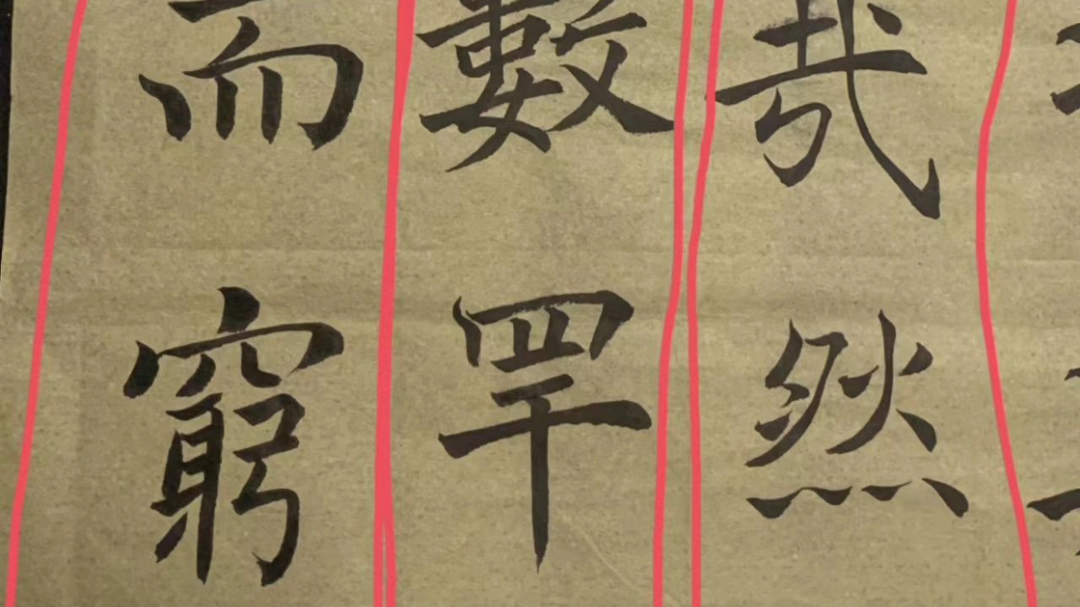 哉然
數罕
而窮